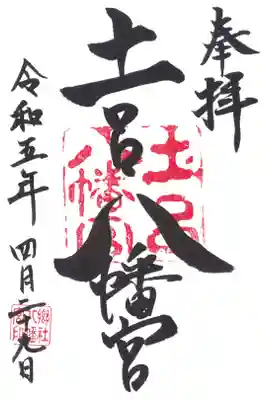 奉拝
土呂八幡宮
令和五年 四月二十九日